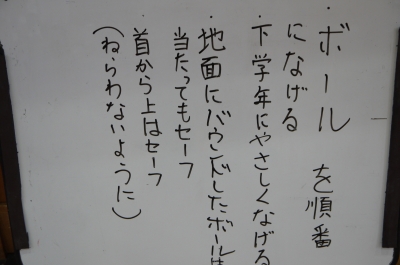 ・ボール を順番
になげる
・下学年にやさしくなげる
・地面にバウンドしたボールは
当たってもセーフ
首から上はセーフ
(ねらわないように)